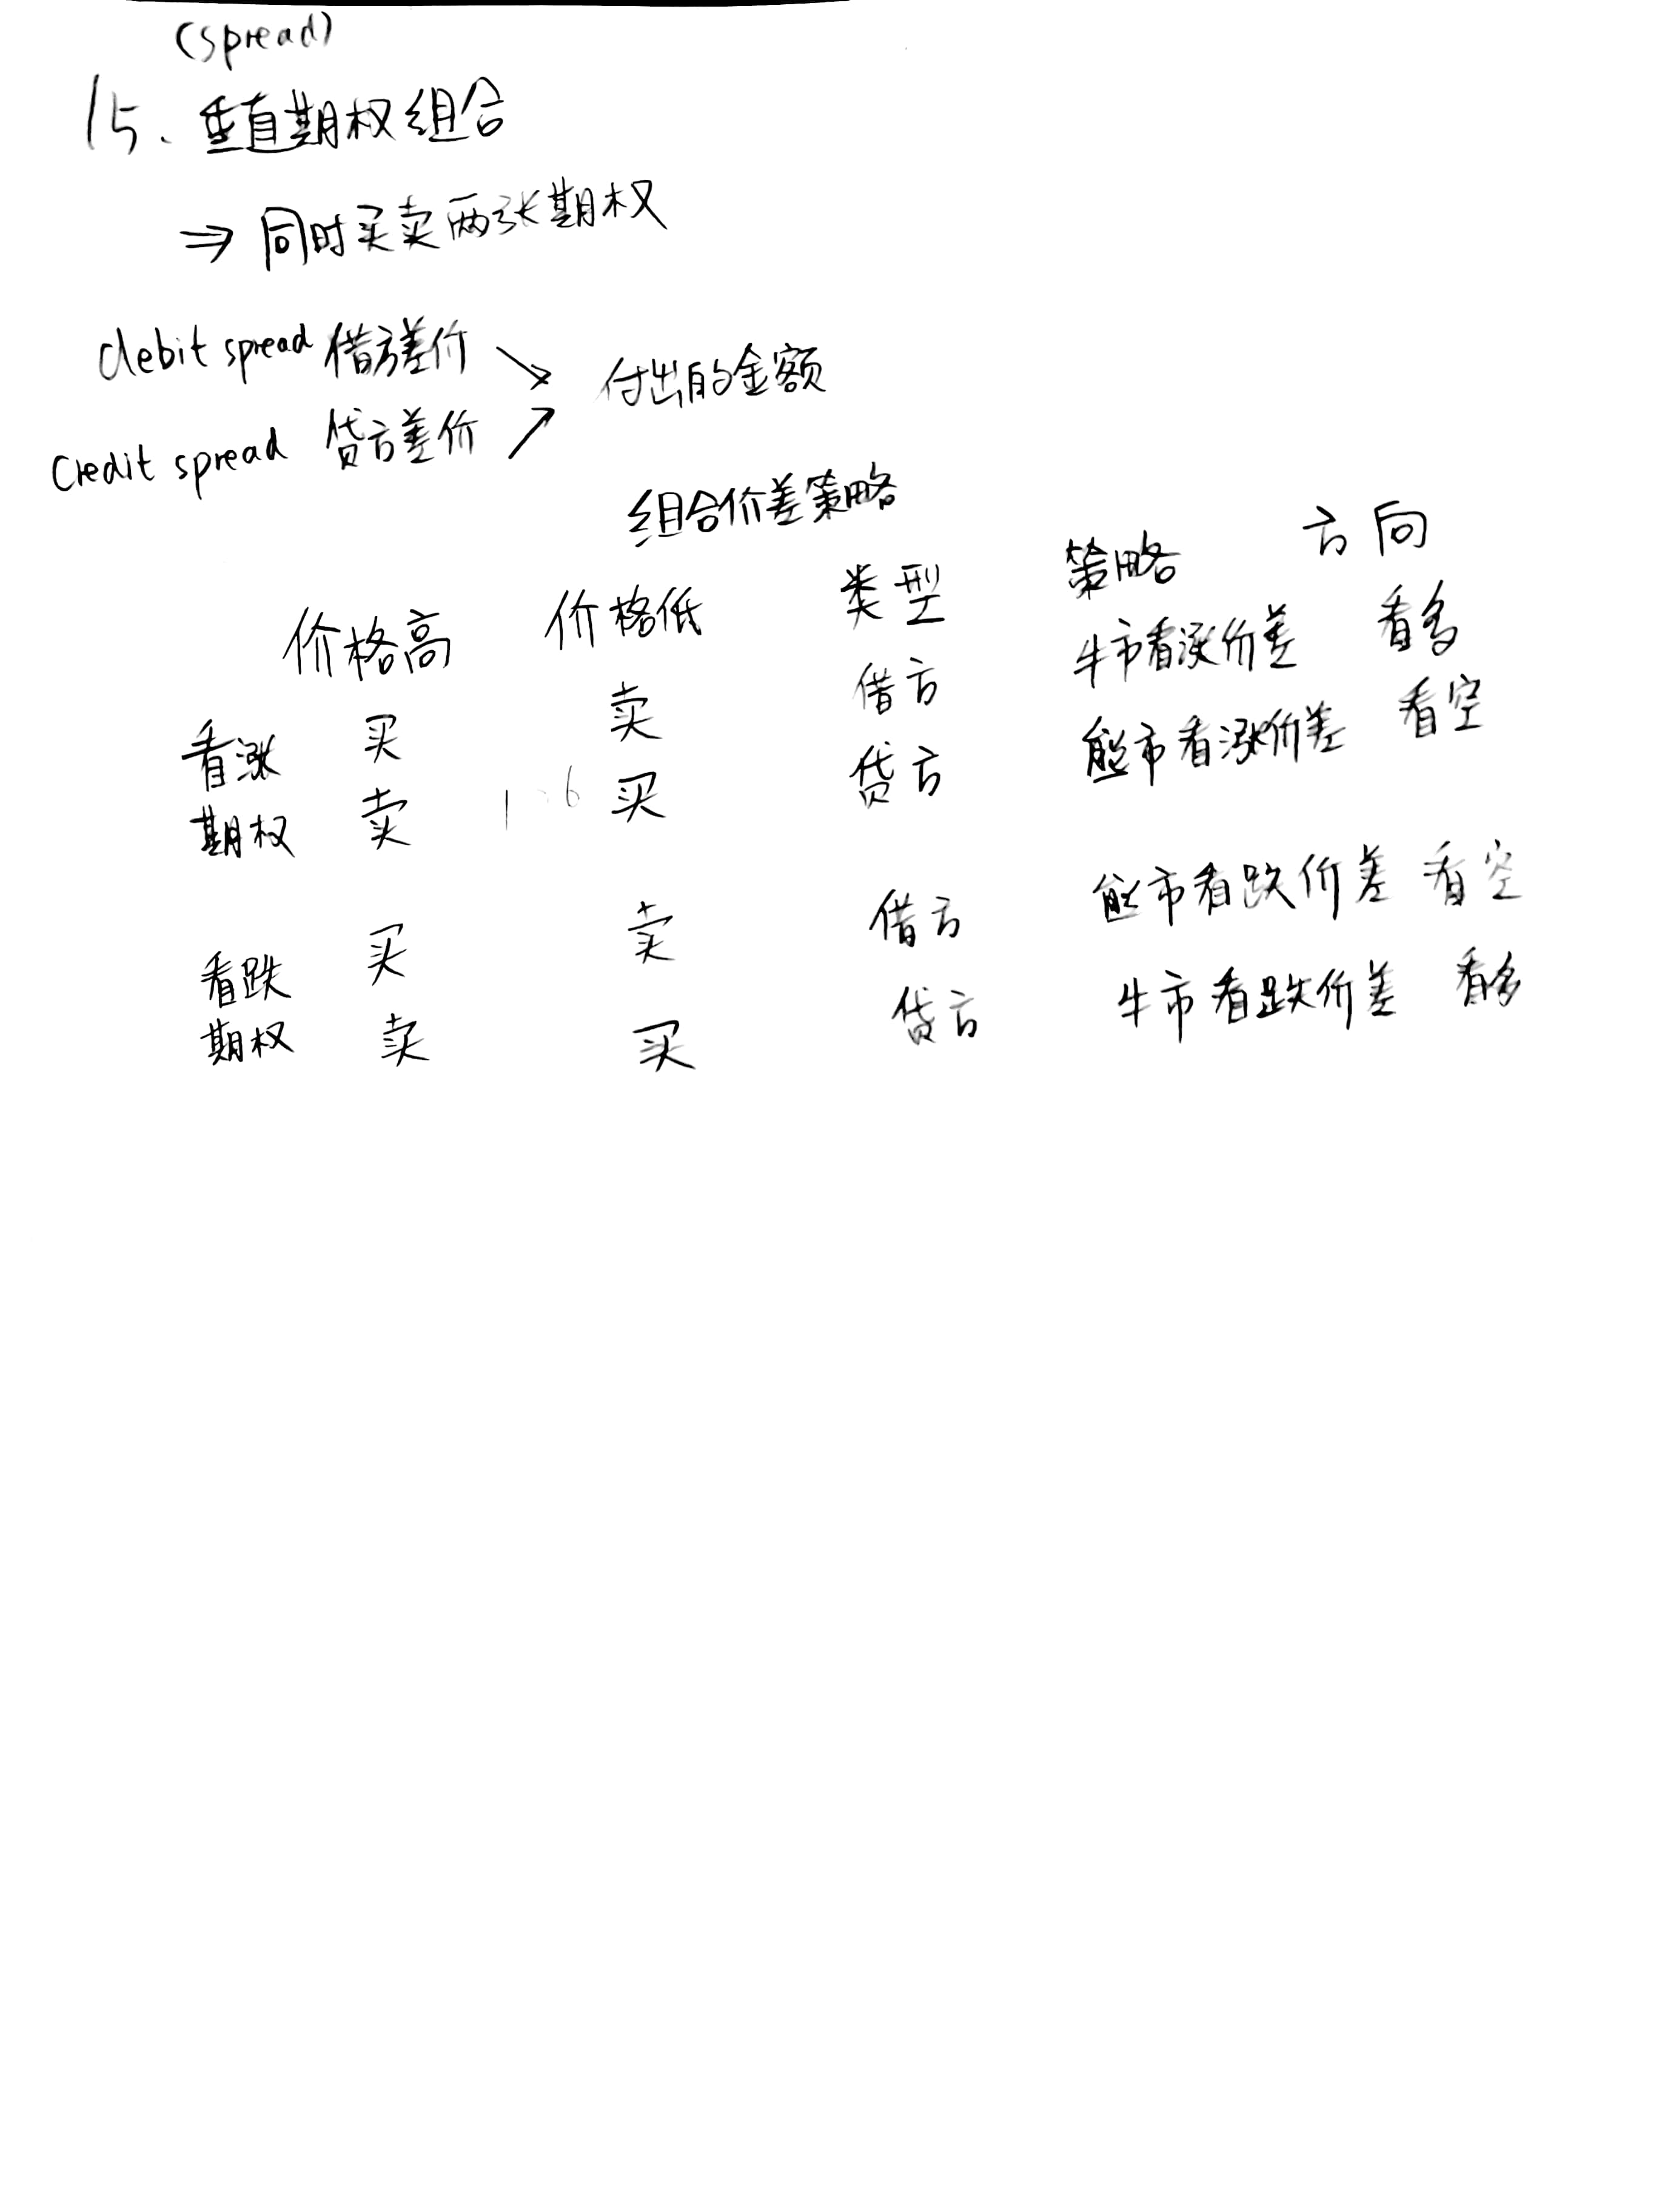 (spread)
15、垂直期权组合
⇒ 同时买卖两张期权
debit spread 借方差价
付出的金额
credit spread 贷方差价
组合价差策略
价格高 价格低 类型 策略 方向
看涨 买 卖 借方 牛市看涨价差 看多
期权 卖 买 贷方 熊市看涨价差 看空
看跌 买 卖 借方 熊市看跌价差 看空
期权 卖 买 贷方 牛市看跌价差 看多